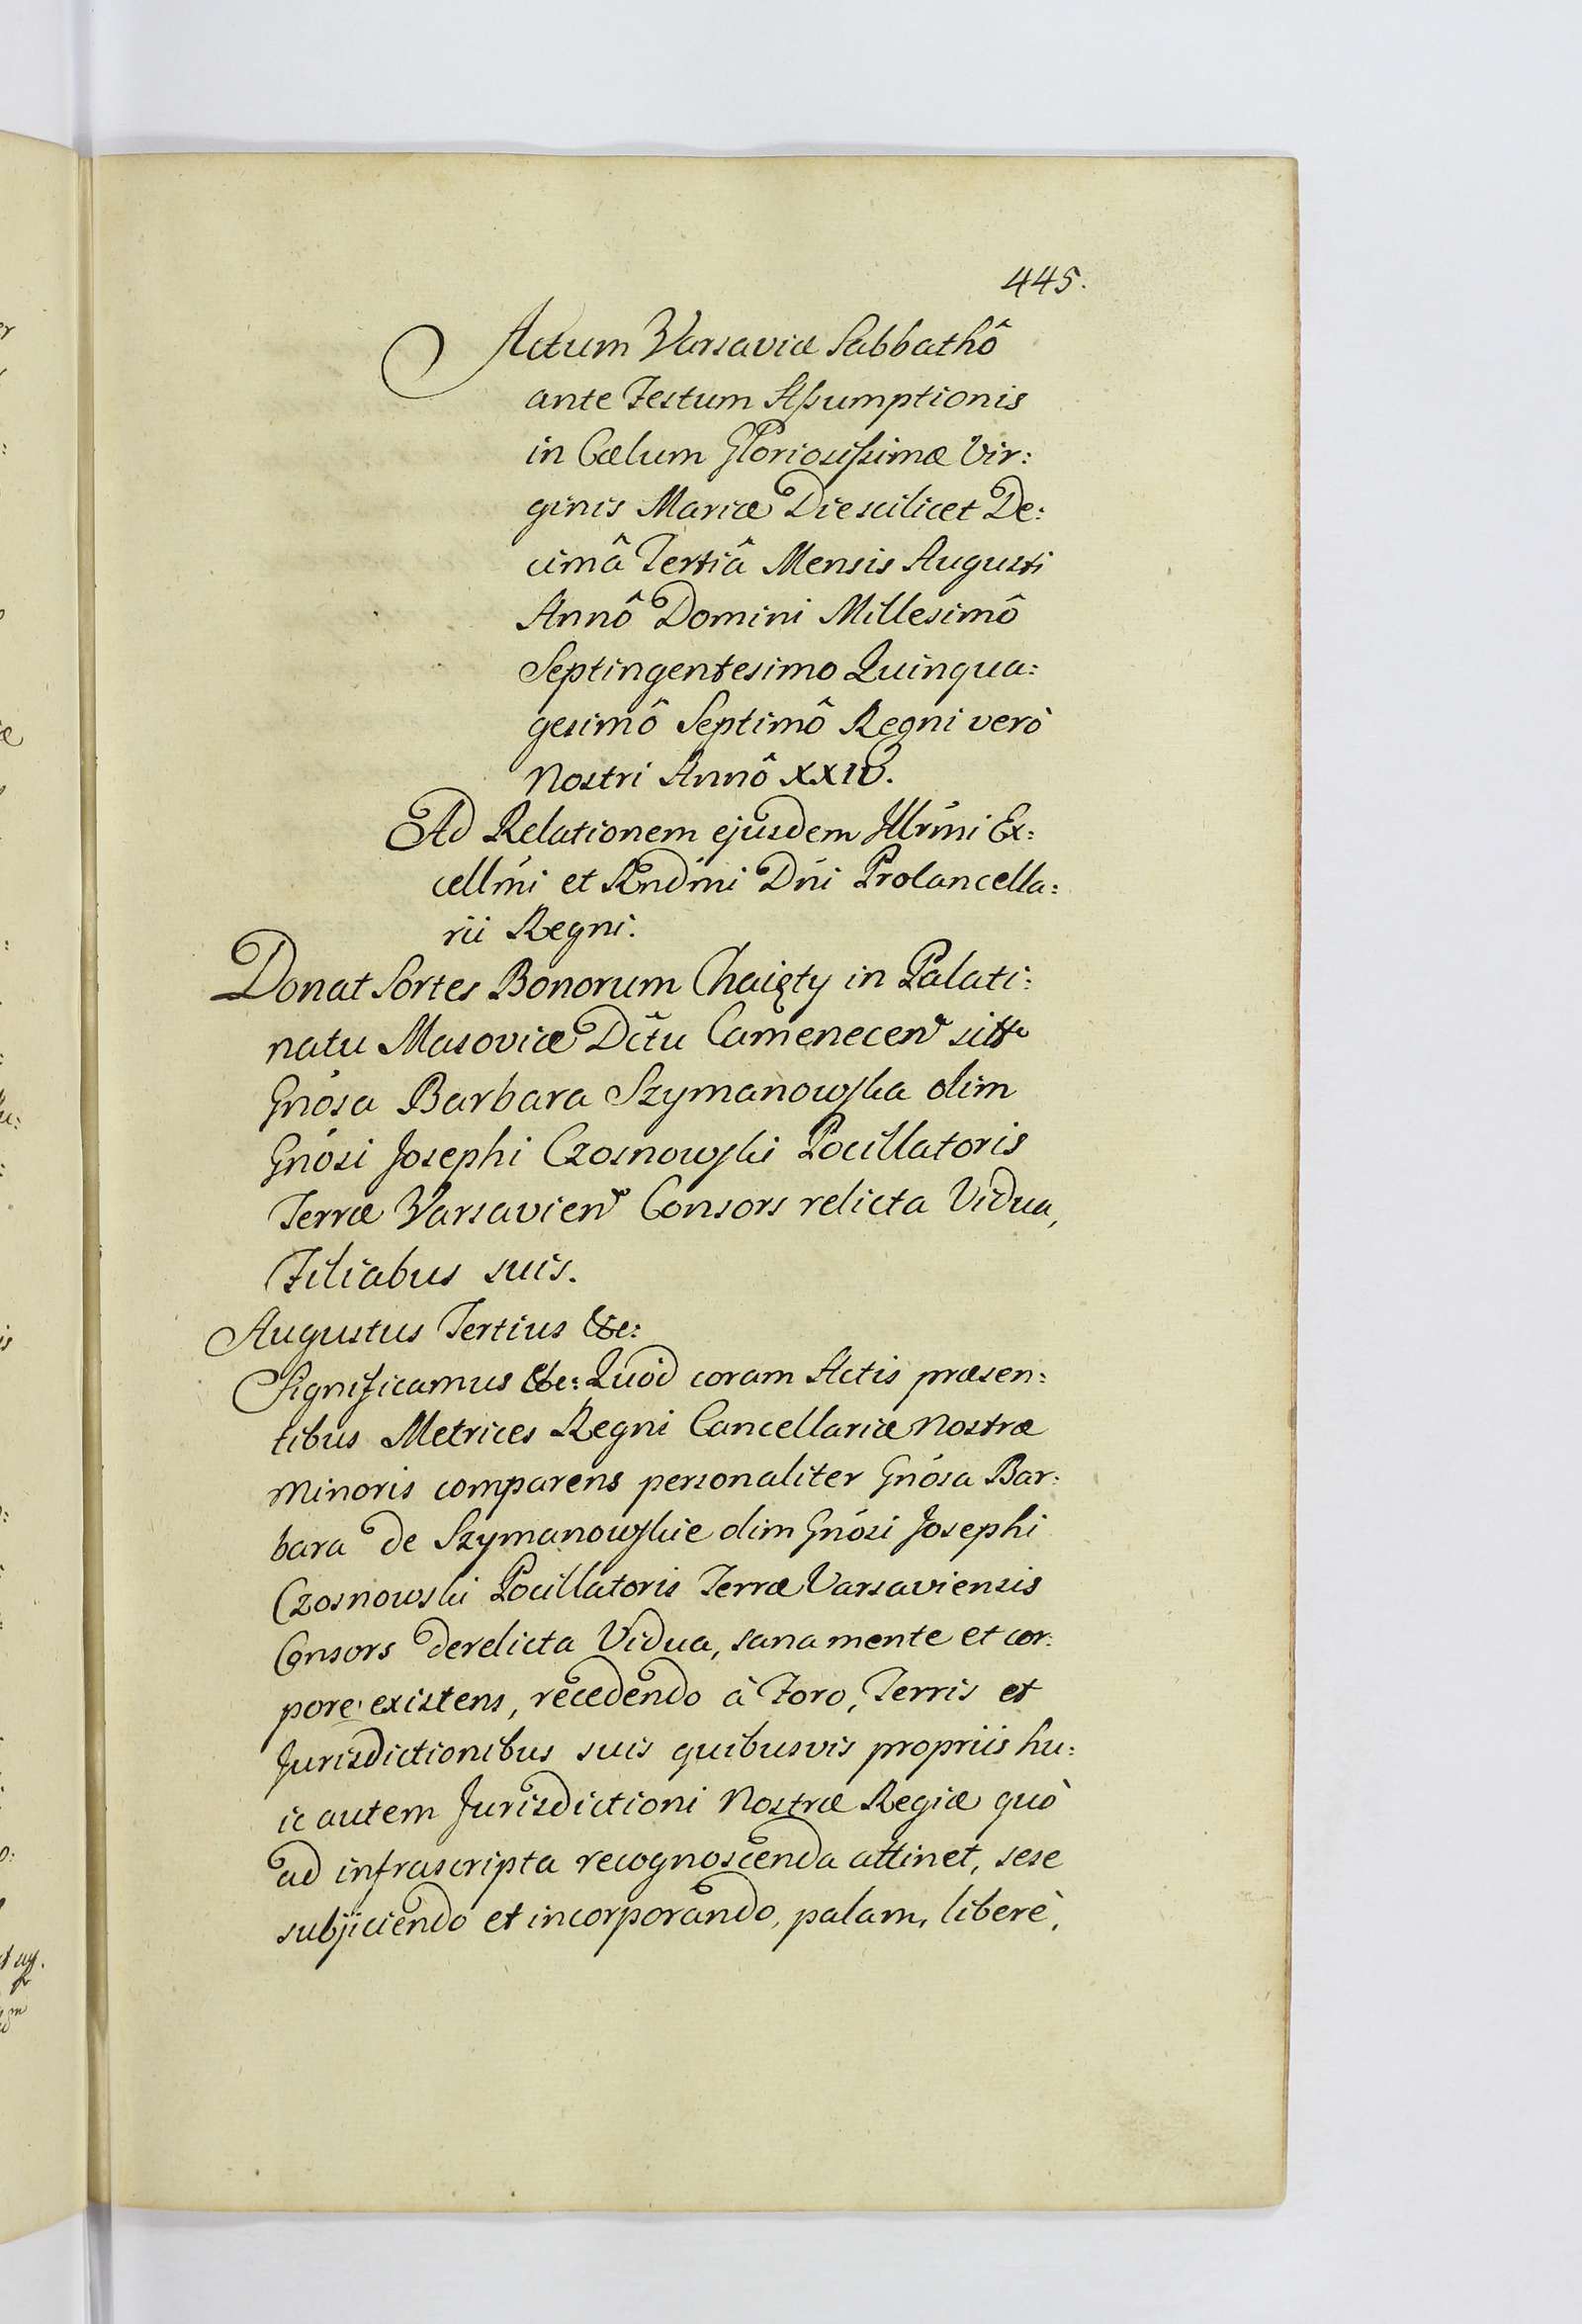 445.
Actum Varsaviæ Sabbathô
ante Festum Assumptionis
in Cælum Gloriosissimæ Vir:
ginis Mariæ Die scilicet De:
cimâ Tertiâ Mensis Augusti
Annô Domini Millesimô
Septingentesimo Quinqua:
gesimô Septimô Regni verò
Nostri Annô XXIV.
Ad Relationem ejusdem Illrmi Ex:
cellmi et Rndmi Dni Procancella:
rii Regni.
Donat Sortes Bonorum Chaięty in Palati:
natu Masoviæ Dctu Camenecen sitt
Gnosa Barbara Szymanowska olim
Gnosi Josephi Czosnowski Pocillatoris
Terræ Varsavien Consors relicta Vidua,
Filiabus suis.
Augustus Tertius &c:
Significamus &c: Quod coram Actis præsen:
tibus Metrices Regni Cancellariæ Nostræ
Minoris comparens personaliter Gnosa Bar:
bara de Szymanowskie olim Gnosi Josephi
Czosnowski Pocillatoris Terræ Varsaviensis
Consors derelicta Vidua, sana mente et cor:
pore existens, recedendo à Foro, Terris et
Jurisdictionibus suis quibusvis propriis hu:
ic autem Jurisdictioni Nostræ Regiæ quò
ad infrascripta recognoscenda attinet, sese
subjiciendo et incorporando, palam, liberè,